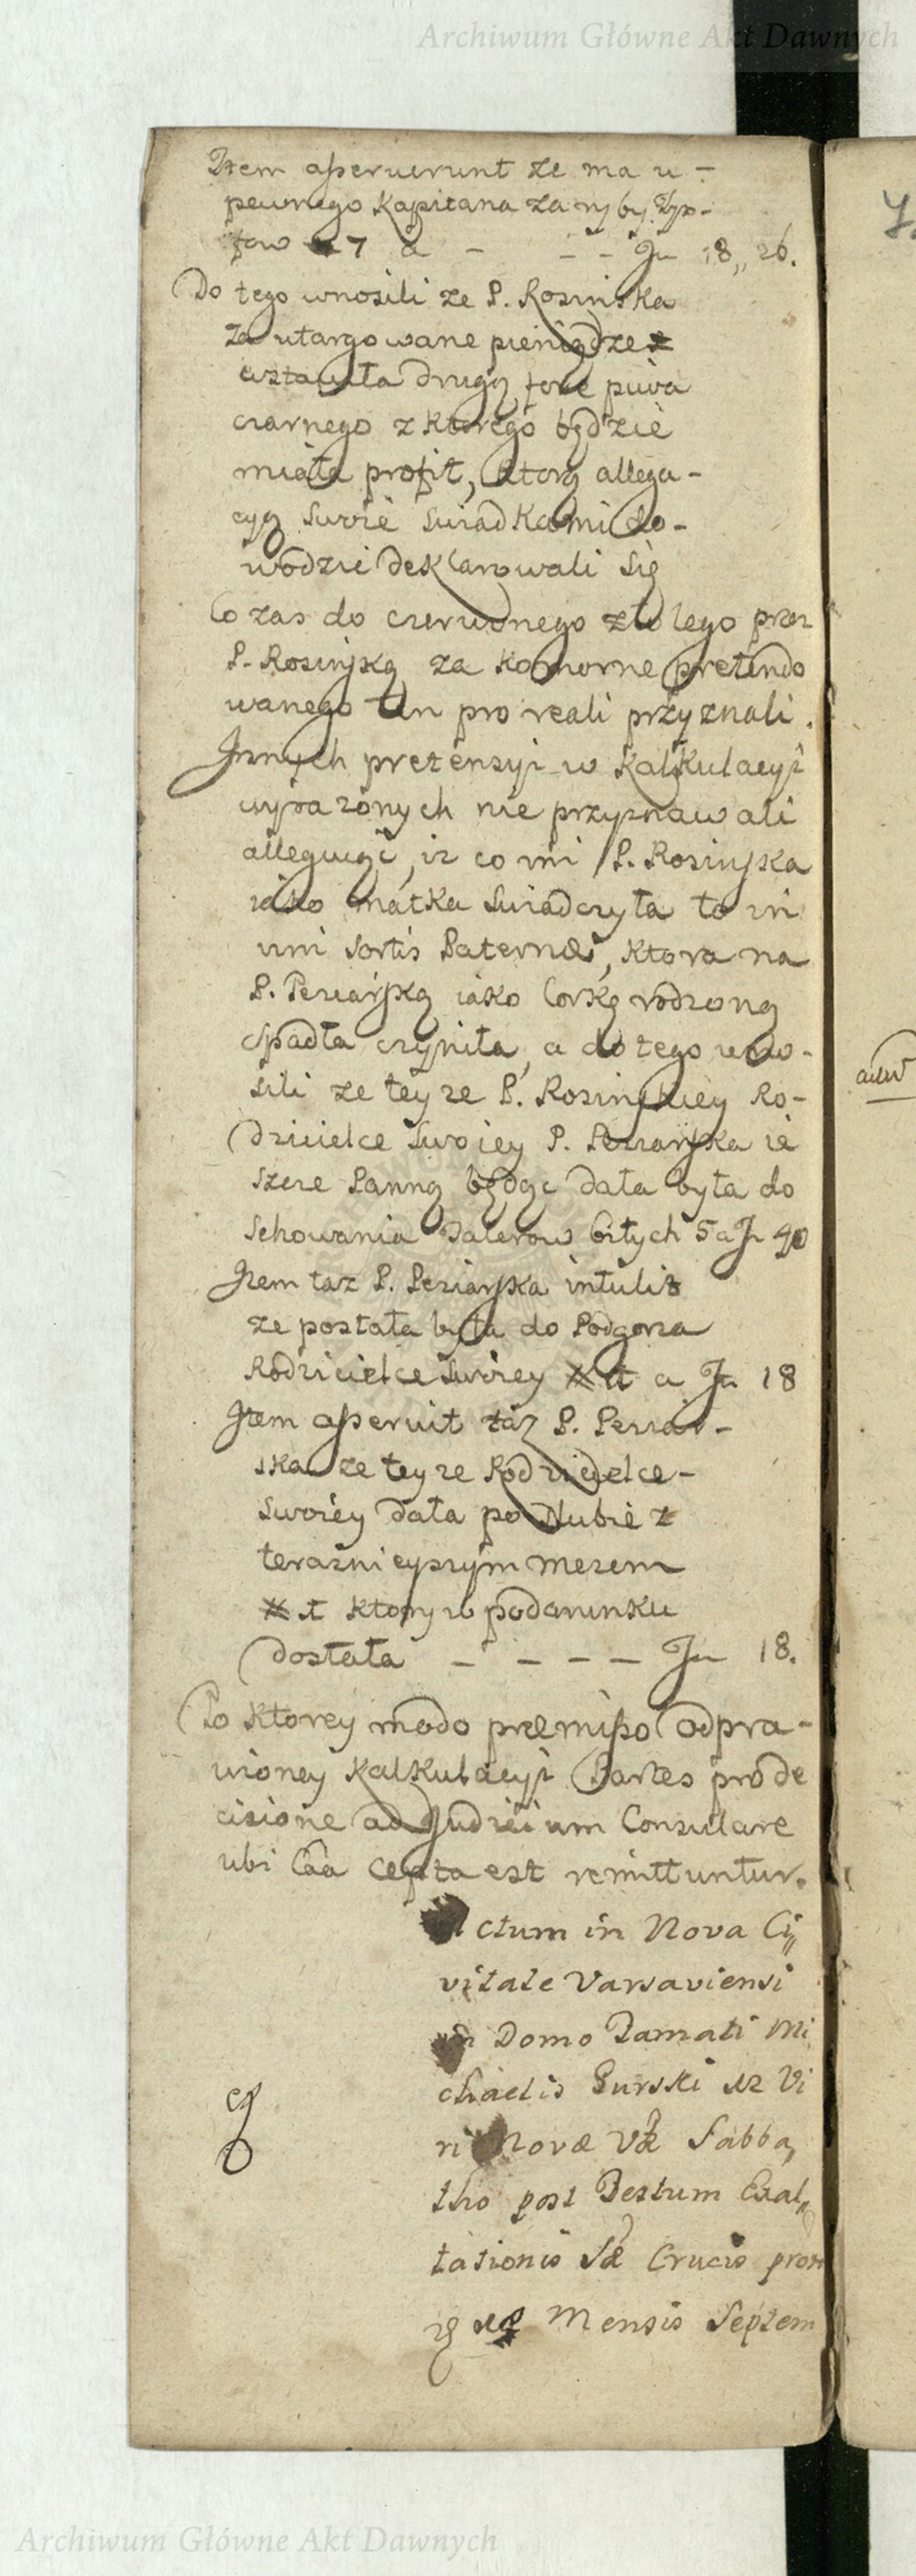 Archiwum Główne Akt Dawnych
Item asseruerunt ze ma u –
pewnego Kapitana za ryby Tyn-
fow 7 a – – – Fn 18,, 26.
Do tego wnosili ze P. Rosinska
za utargowane pieniądze
wstawiła drugą fose piwa
czarnego z ktorego będzie
miała profit, ktorą allega-
cyą swoię swiadkami do-
wodzić deklarowali się
Co zas do czerwonego złotego przez
P. Rosinską za komorne pretendo
wanego ten pro reali przyznali.
Innych pretensyi w Kalkulacyi
wyrazonych nie przyznawali
alleguiąc, iz co im P. Rosinska
iako matka swiadczyła to in
vim sortis Paternæ, ktora na
P. Peszarską iako Corkę rodzoną
spadła czyniła, a do tego wno-
sili ze teyze P. Rosinskiey Ro-
dzicielce swoiey P. Peszarska ie
szcze Panną będąc dała była do
schowania Talerow bitych 5 a Fn 40
Item taz P. Peszarska intulit
ze posłała była do Podgorza
Rodzicielce swoiey # zł a Fn 18
Item asseruit taz P. Peszar-
ska ze teyze Rodzicielce –
swoiey dała po slubie z
teraznieyszym mezem
# zł ktory w podarunku
dostała – – – – Fn 18.
Po ktorey modo præmisso odpra-
wioney Kalkulacyi Partes pro de
cisione ad Judicium Consulare
ubi Caa cepta est remittuntur.
Actum in Nova Ci,,
vitate Varsaviensi
in Domo Famati Mi
chaelis Gurski
Novæ Væ Sabba,,
tho post Festum Exal,,
tationis Sæ Crucis
Mensis Septem
Archiwum Główne Akt Dawnych